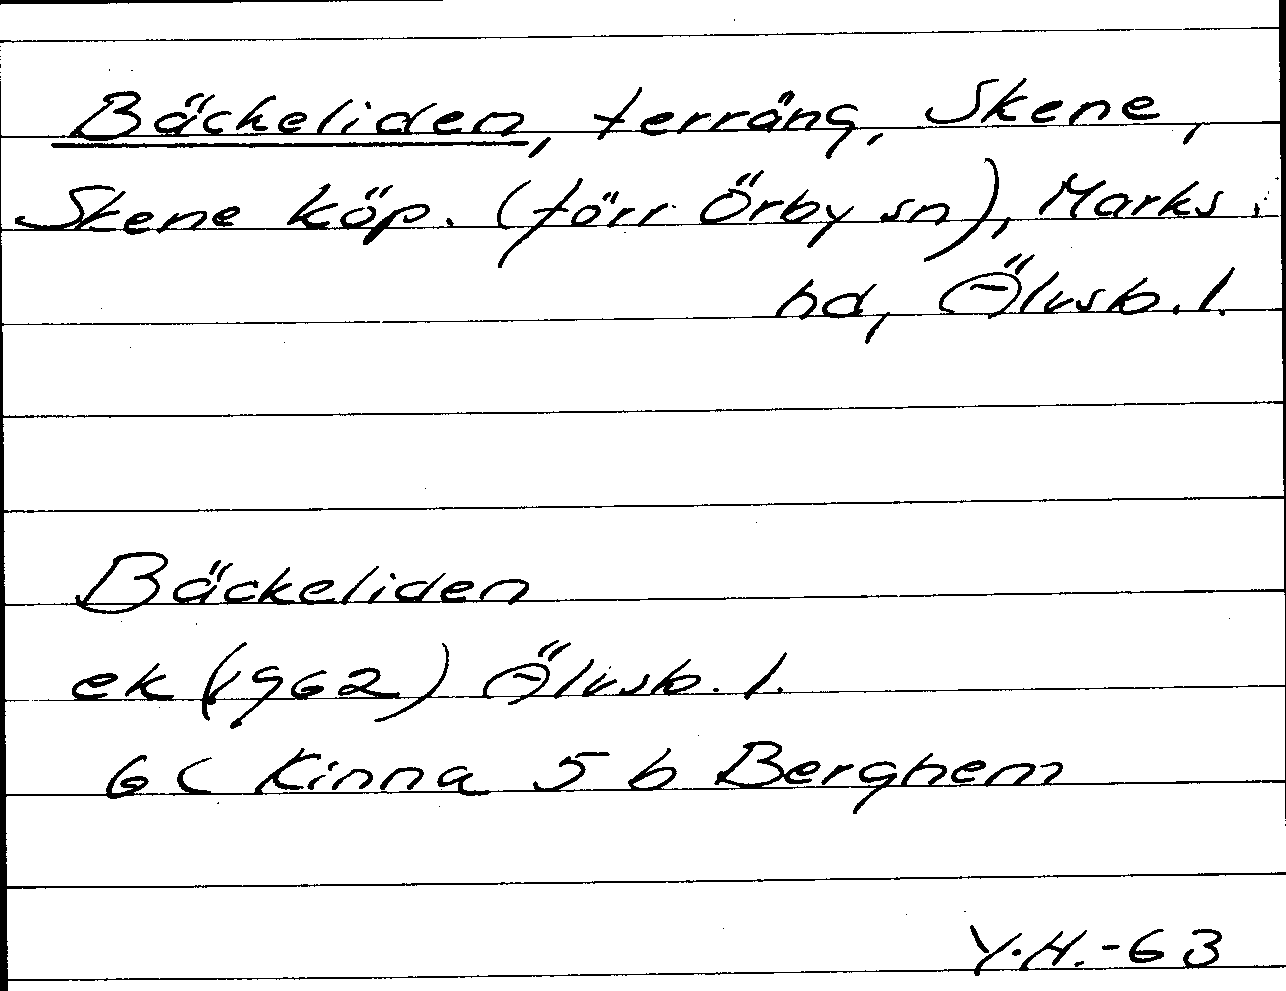 Bäckeliden, terräng, Skene,
Skene köp. (förr Örby sn), Marks
hd, Älvsb. l.
Bäckeliden
ek (1962) Älvsb. l.
6 C Kinna 5 b Berghem
Y.H.-63